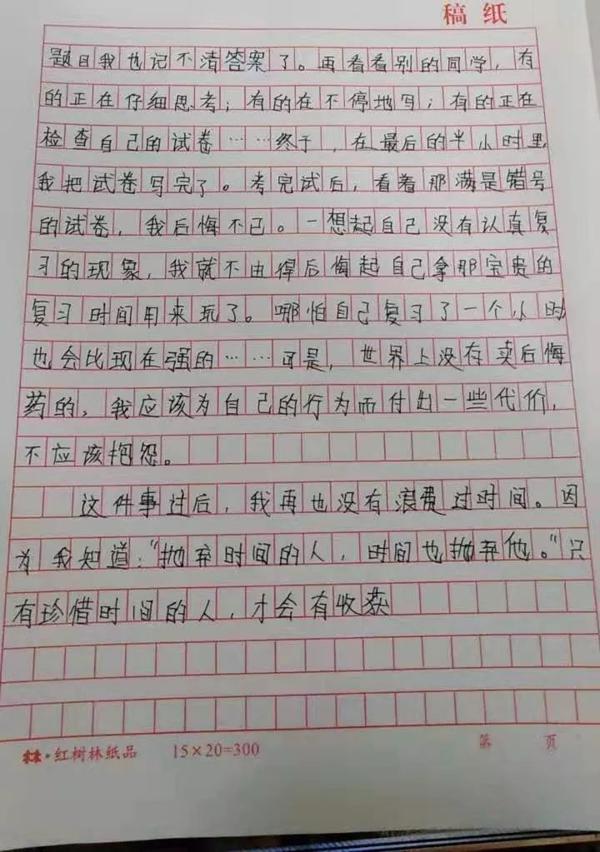 稿纸
题目我也记不清答案了。再看看别的同学，有
的正在仔细思考；有的在不停地写；有的正在
检查自己的试卷……终于，在最后的半小时里
我把试卷写完了。考完试后，看着那满是错号
的试卷，我后悔不已。一想起自己没有认真复
习的现象，我就不由得后悔起自己拿那宝贵的
复习时间用来玩了。哪怕自己复习了一个小时
也会比现在强的……可是，世界上没有卖后悔
药的，我应该为自己的行为而付出一些代价，
不应该抱怨。
这件事过后，我再也没有浪费过时间。因
为我知道：“抛弃时间的人，时间也抛弃他。”只
有珍惜时间的人，才会有收获
红树林纸品 15×20=300 第 页